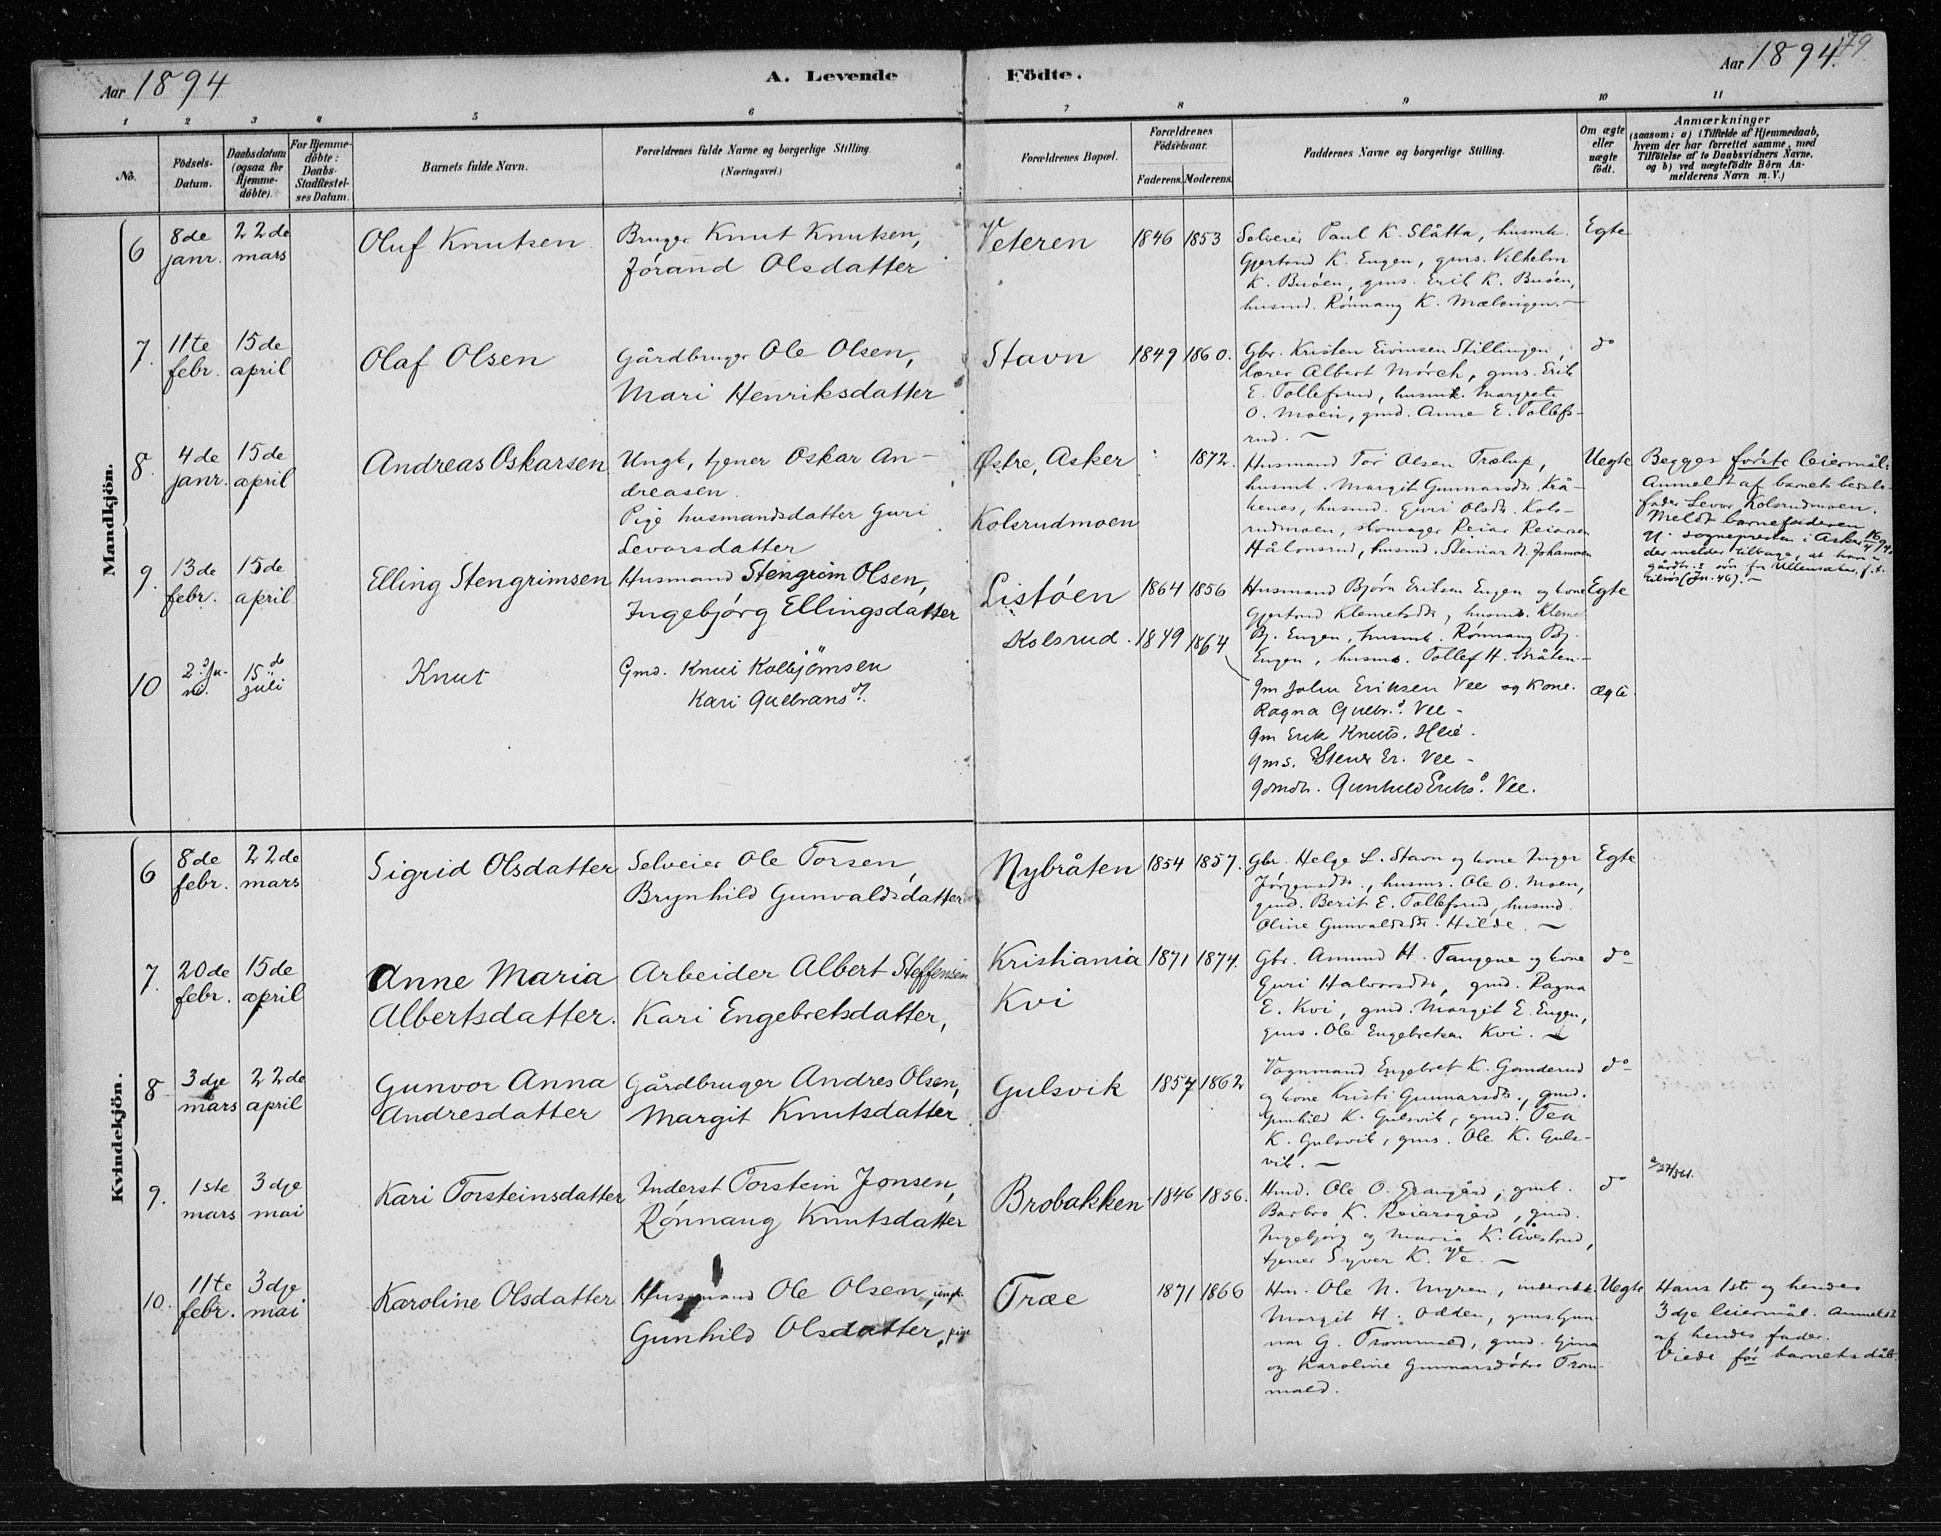 Aar 1894
A. Levende Födte.
Aar 1894.
79
1 2 3 4 5 6 7 8 9 10 11
No.
Födsels-Datum.
Daabsdatum (ogsaa for Hjemme-döbte).
For Hjemme-döbte: Daabs-Stadfæstel-ses Datum.
Barnets fulde Navn.
Forældrenes fulde Navne og borgerlige Stilling. (Næringsvei.)
Forældrenes Bopæl.
Forældrenes Födselsaar.
Faderens. Moderens.
Faddernes Navne og borgerlige Stilling.
Om ægte eller uægte födt.
Anmærkninger
(saasom: a) i Tilfælde af Hjemmedaab,
hvem der har forrettet samme, med
Tilföielse af to Daabsvidners Navne.
og b) ved uægtefödte Börn An-
melderens Navn m. V.)
Mandkjön.
6
8de janr.
22de mars
Oluf Knutsen
Bruger Knut Knutsen,
Jórand Olsdatter
Veteren
1846 1853
Selveier Paul K. Slåtta, husmk.
Gjertrud K. Eugen, gms. Vilhelm
K. Buöen, gms. Erik K. Buöen,
husmd. Rönnaug K. Mælingen. —
Egte
7.
11te febr.
15de april
Olaf Olsen
Gårdbruger Ole Olsen,
Mari Henriksdatter
Stavn
1849 1860.
Gbr. Kristen Eivinsen Stillingen,
lærer Albert Mörch, gms. Erik
E. Tollefsrud, husmk. Margrete
O. Moen, gmd. Anne E. Tollefs-
rud. —
do
8.
4de janr.
15de april
Andreas Oskarsen
Ungk, tjener Oskar An-
dreasen.
Pige husmandsdatter Guri
Levorsdatter
Østre, Asker
Kolsrudmoen
1872.
Husmand Tor Olsen Trælup,
husmk. Margit Gunnarsdtr. Krå-
kenes, husmd. Guri Olsdtr. Kols-
rudmoen, skomager Reiar Reiarsen
Hålonsrud, husmd. Steinar N. Johanmoen
Uegte
Begges förste leiermål.
Anmeldt af barnets beste-
fader Levor Kolsrudmoen.
Meldt barnefaderen
til sognepresten i Asker 16/4 94,
der melder tilbage, at han er
9.
13de febr.
15de april
Elling Stengrimsen
Husmand Stengrim Olsen,
Ingebjørg Ellingsdatter
Listöen
1864 1856
Husmand Björn Eriksen Eugen og kone
Gjertrud Klemetsdtr, husms. Klemet
Bj. Eugen, husmk. Rönnaug Bj.
Eugen, husms. Tollef H. Bråten. —
Egte
10
15de juli
Knut
Gmd. Knut Kolbjörnsen
Kari Gulbransd.
Kolsrud.
1849 1864
Gm John Eriksen Vee og Kone.
Ragna Gulbr.d. Vee -
Gm Erik Knuts. Heie.
gms. Stener Er. Vee -
gdmdtr. Gunhild Eriksd. Vee.
ægte
Kvindekjön.
6
8de febr.
22de mars
Sigrid Olsdatter
Selveier Ole Torsen,
Brynhild Gunvaldsdatter
Nybråten
1854 1857.
Gbr. Helge L. Stavn og kone Inger
Jörgensdtr., husms. Ole O. Moen,
gmd. Berit E. Tollefsrud, husmd.
Oline Gunvaldsdtr. Hilde. —
Egte
7.
20de febr.
15de april
Anne Maria
Albertsdatter.
Arbeider Albert Steffensen
Kari Engebretsdatter,
Kristiania
Kvi
1871 1874.
Gbr. Amund H. Tangene og kone
Guri Halvorsdtr, gmd. Ragna
E. Kvi, gmd. Margit E. Eugen,
gms. Ole Engebretsen Kvi. —
do
8
3dje mars
22de april
Gunvor Anna
Andresdatter
Gårdbruger Andres Olsen,
Margit Knutsdatter
Gulsvik
1857 1862
Vognmand Engebret K. Ganderud
og kone Kristi Gunnarsdtr., gmd.
Gunhild K. Gulsvik, gmd. Tea
K. Gulsvik, gms. Ole K. Guls-
vik. —
do
9.
1ste mars
3dje mai
Kari Torsteinsdatter
Inderst Torstein Jonsen,
Rönnaug Knutsdatter
Brobakken
1846 1856.
Hmd. Ole O. Grangård, gmk.
Barbro K. Reiarsgård, gmd.
Ingebjörg og Maria K. Åvestrud,
tjener Syver K. Ve. —
do
10.
11te febr.
3dje mai
Karoline Olsdatter
Husmand Ole Olsen, ungk.
Gunhild Olsdatter, pige
Træe
1871 1866
Hm. Ole N. Myren, inderstk.
Margit H. Odden, gms. Gun-
nar G. Trommald, gmd. Gina
og Karoline Gunnarsdötre Trom-
mald.
Uegte
Hans 1ste og hendes
3dje leiermål. Anmeldt
af hendes fader.
Viede før barnets dåb.